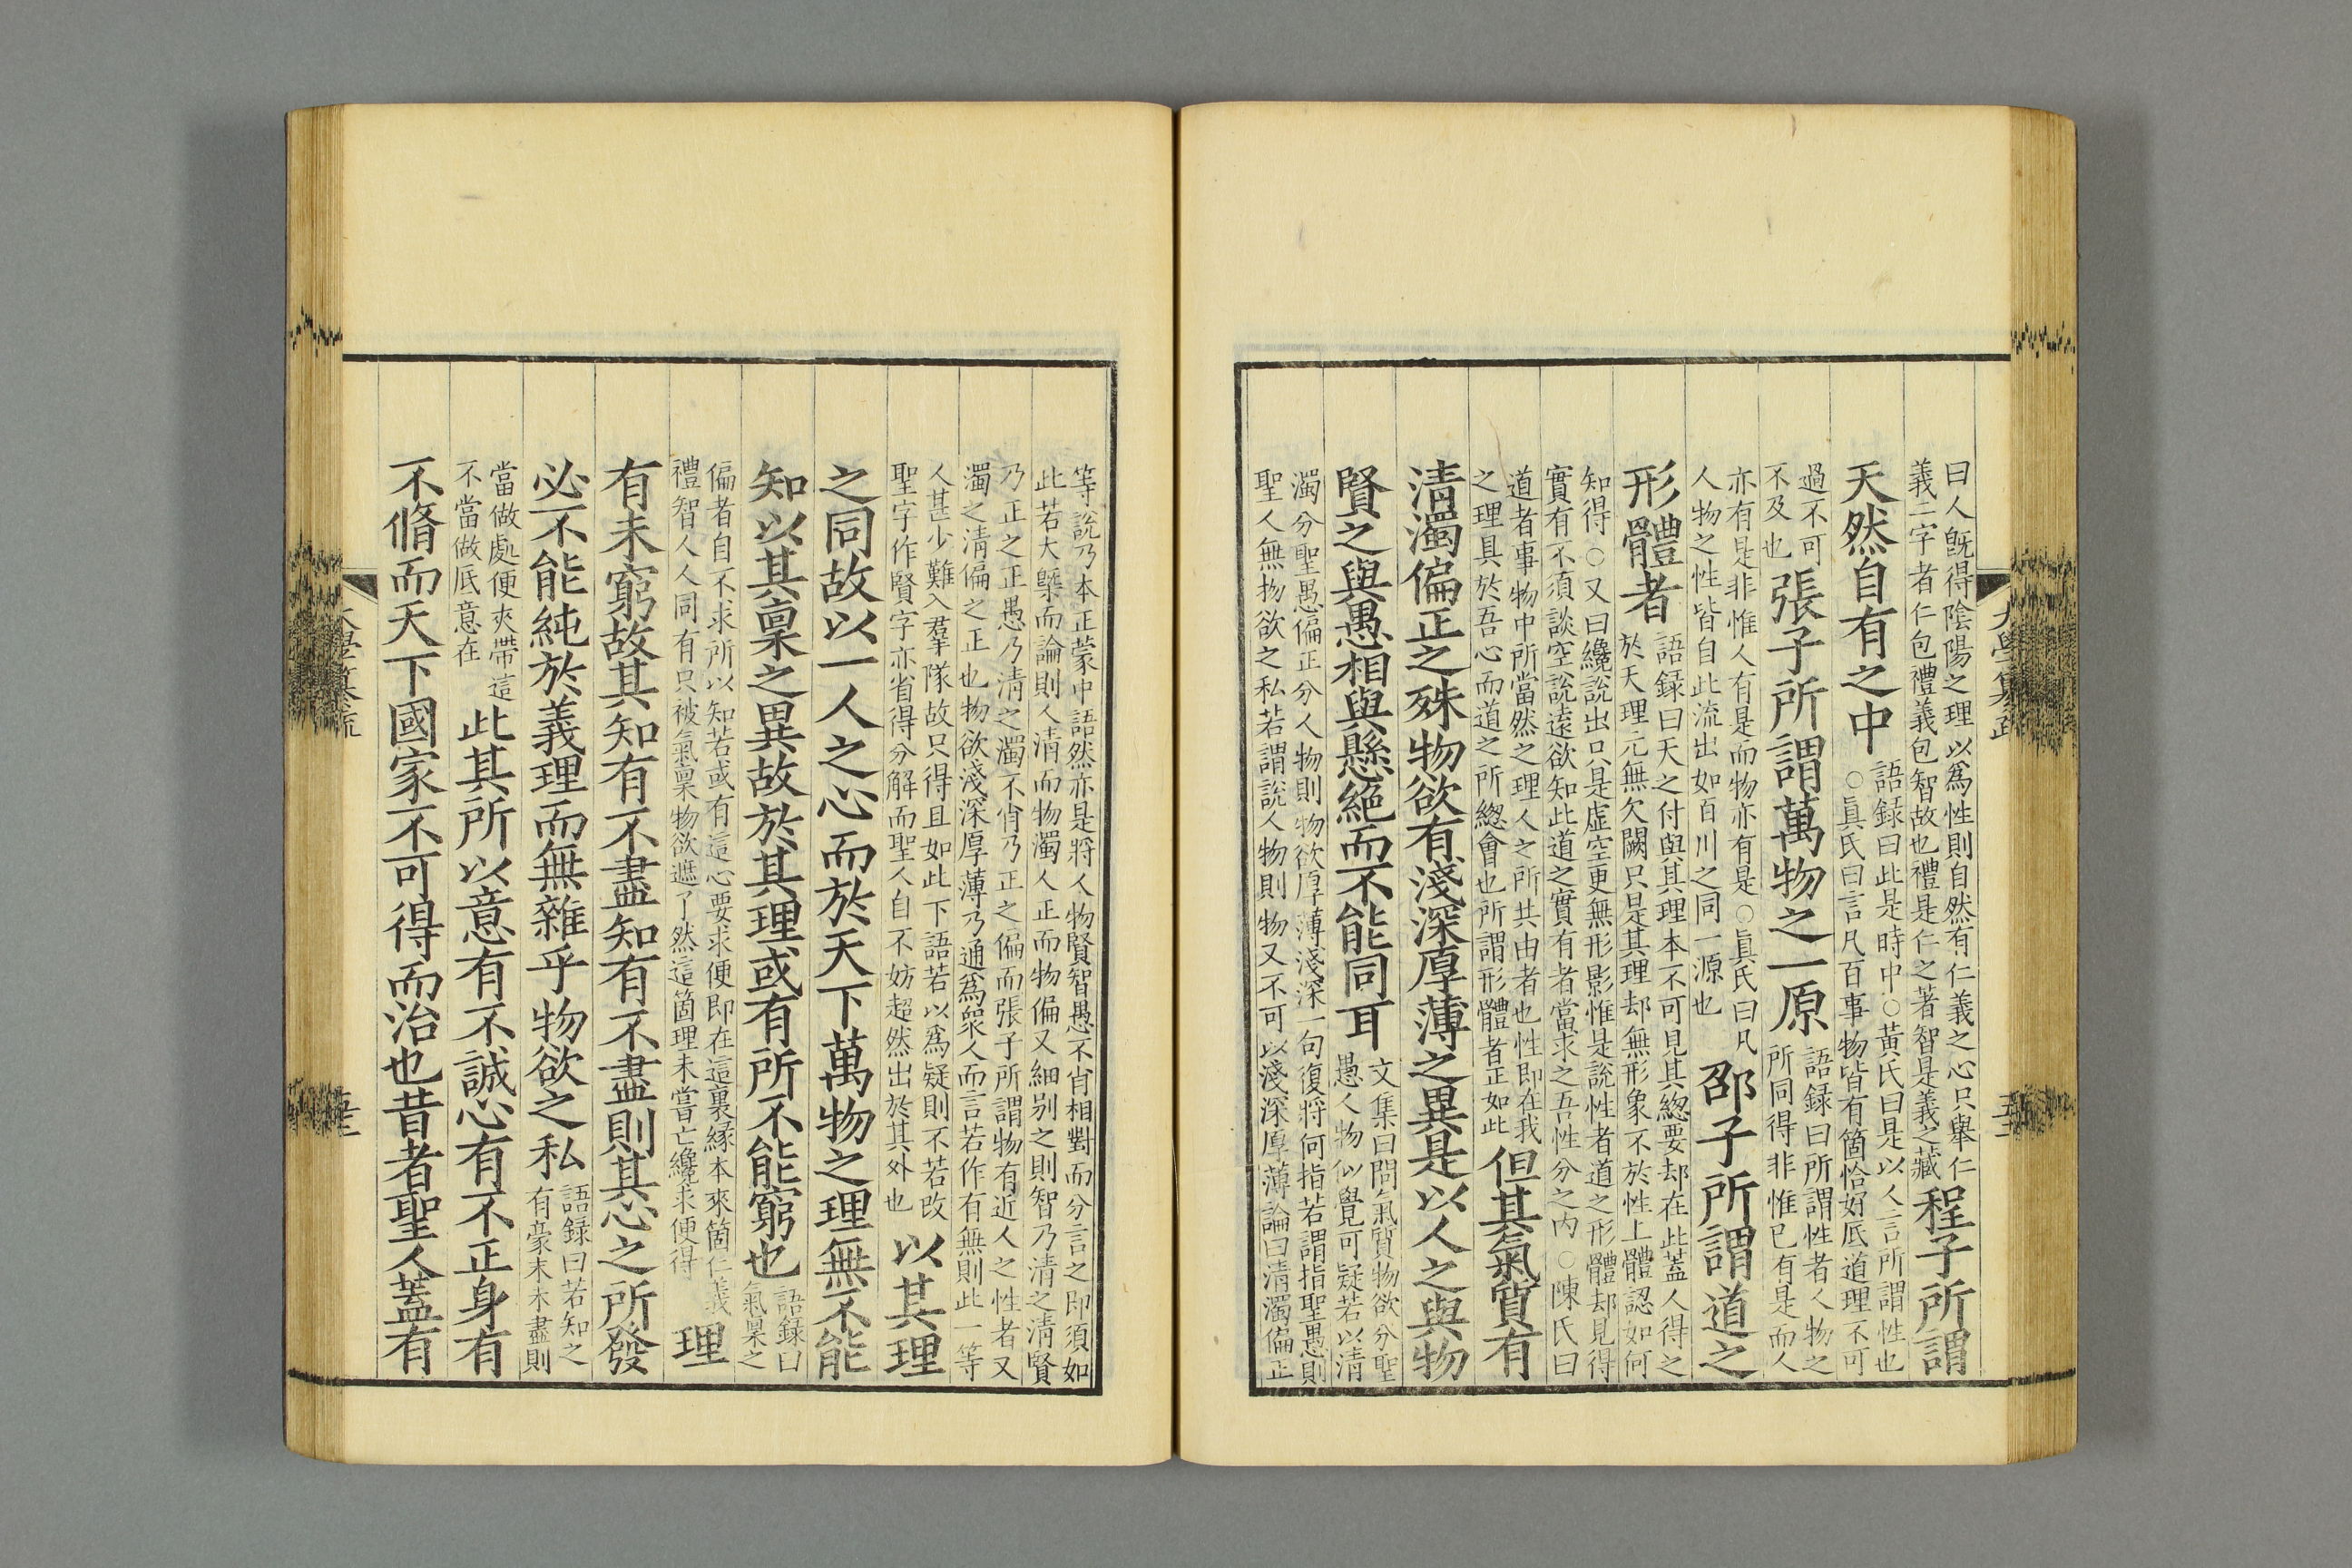 曰人旣得陰陽之理以爲性則自然有仁義之心只舉仁
義二字者仁包禮義包智故也禮是仁之著智是義之藏
程子所謂
天然自有之中
語録曰此是時中○黃氏曰是以人言所謂性也
○眞氏曰言凡百事物皆有箇恰好底道理不可
過不可
不及也
張子所謂萬物之一原
語録曰所謂性者人物之
所同得非惟已有是而人
亦有是非惟人有是而物亦有是○眞氏曰凡
人物之性皆自此流出如百川之同一源也
邵子所謂道之
形體者
語録曰天之付與其理本不可見其緫要却在此蓋人得之
於天理元無欠闕只是其理却無形象不於性上體認如何
知得○又曰纔說出只是虛空更無形影惟是說性者道之形體却見得
實有不須談空說遠欲知此道之實有者當求之吾性分之内○陳氏曰
道者事物中所當然之理人之所共由者也性即在我
之理具於吾心而道之所總會也所謂形體者正如此
但其氣質有
清濁偏正之殊物欲有淺深厚薄之異是以人之與物
賢之與愚相與懸絕而不能同耳
文集曰問氣質物欲分聖
愚人物似覺可疑若以清
濁分聖愚偏正分人物則物欲厚薄淺深一句復將何指若謂指聖愚則
聖人無物欲之私若謂說人物則物又不可以淺深厚薄論曰清濁偏正
等說乃本正蒙中語然亦是將人物賢智愚不肖相對而分言之即須如
此若大槩而論則人清而物濁人正而物偏又細別之則智乃清之清賢
乃正之正愚乃清之濁不肖乃正之偏而張子所謂物有近人之性者又
濁之清偏之正也物欲淺深厚薄乃通爲衆人而言若作有無則此一等
人甚少難入羣隊故只得且如此下語若以爲疑則不若改
聖字作賢字亦省得分解而聖人自不妨超然出於其外也
以其理
之同故以一人之心而於天下萬物之理無不能
知以其稟之異故於其理或有所不能窮也
語録曰
氣稟之
偏者自不求所以知若或有這心要求便即在這裏緣本來箇仁義
禮智人人同有只被氣稟物欲遮了然這箇理未嘗亡纔求便得
理
有未窮故其知有不盡知有不盡則其心之所發
必不能純於義理而無雜乎物欲之私
語録曰若知之
有豪末未盡則
當做處便夾帶這
不當做底意在
此其所以意有不誠心有不正身有
不脩而天下國家不可得而治也昔者聖人蓋有